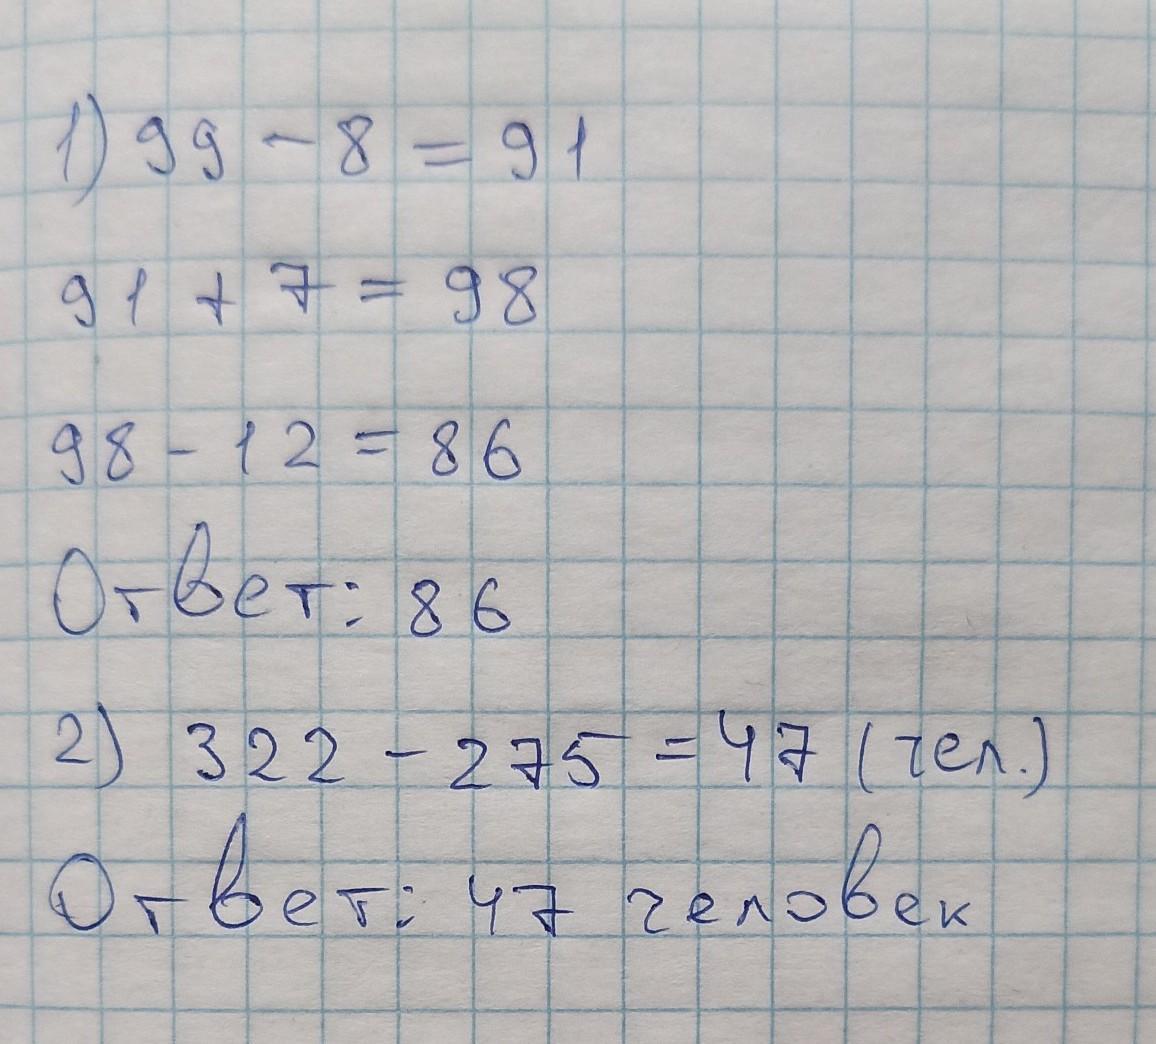 1) 99 - 8 = 91
91 + 7 = 98
98 - 12 = 86
Ответ: 86
2) 322 - 275 = 47 (чел.)
Ответ: 47 человек